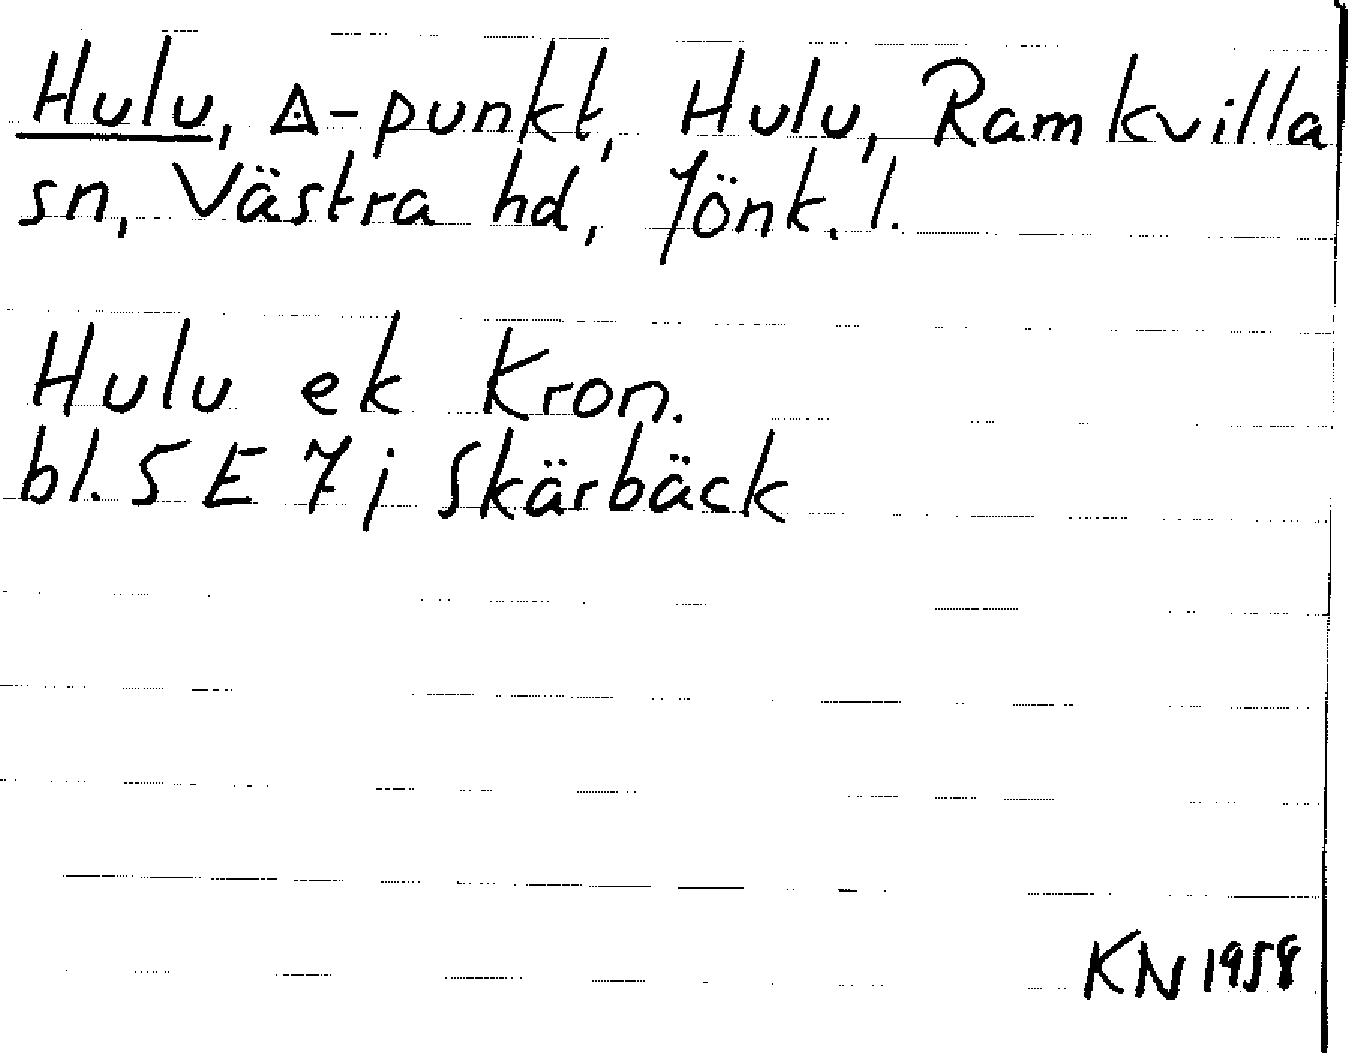 Hulu, Δ-punkt, Hulu, Ramkvilla
sn, Västra hd, Jönk. l.
Hulu ek Kron.
bl. 5 E 7 j Skärbäck
KN 1958